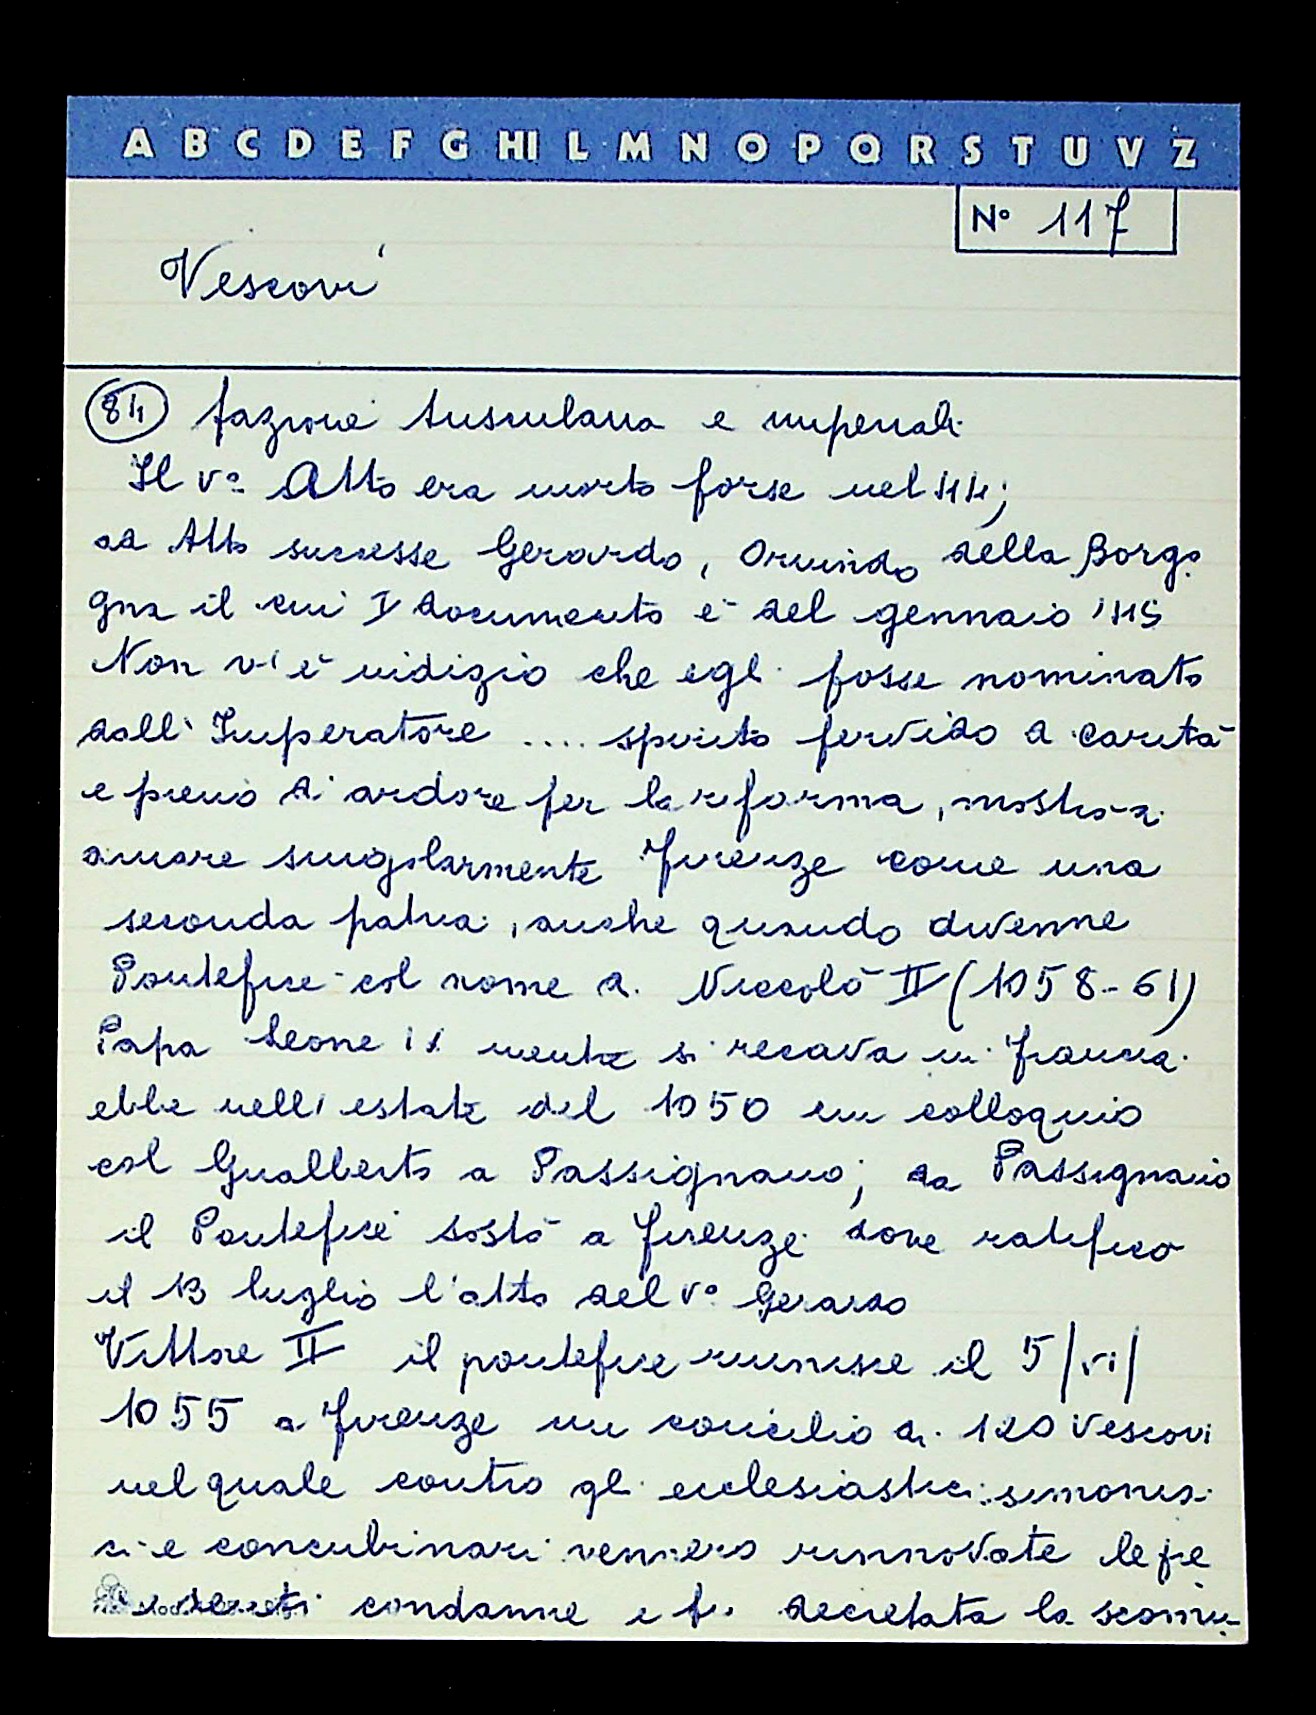 A B C D E F G HI L M N O P Q R S T U V Z
N° 117
Vescovi
84 fazione tusculana e imperiali
Il v° Atto era morto forse nel 44;
ad Atto successe Gerardo, oriundo della Borgo
gna il cui I documento è del gennaio '45
Non v'è indizio che egli fosse nominato
dall'Imperatore .... spirito fervido di carità
e pieno di ardore per la riforma, mostrò di
amare singolarmente Firenze come una
seconda patria, anche quando divenne
Pontefice col nome di Niccolò II (1058-61)
Papa Leone IX mentre si recava in Francia
ebbe nell'estate del 1050 un colloquio
col Gualberto a Passignano; da Passignano
il Pontefice sostò a Firenze dove ratificò
il 13 luglio l'atto del v° Gerardo
Vittore II il pontefice riunisce il 5/VI/
1055 a Firenze un concilio di 120 Vescovi
nel quale contro gli ecclesiastici simonia
ci e concubinari vennero rinnovate le pre
cedenti condanne e fu decretata la scomu-